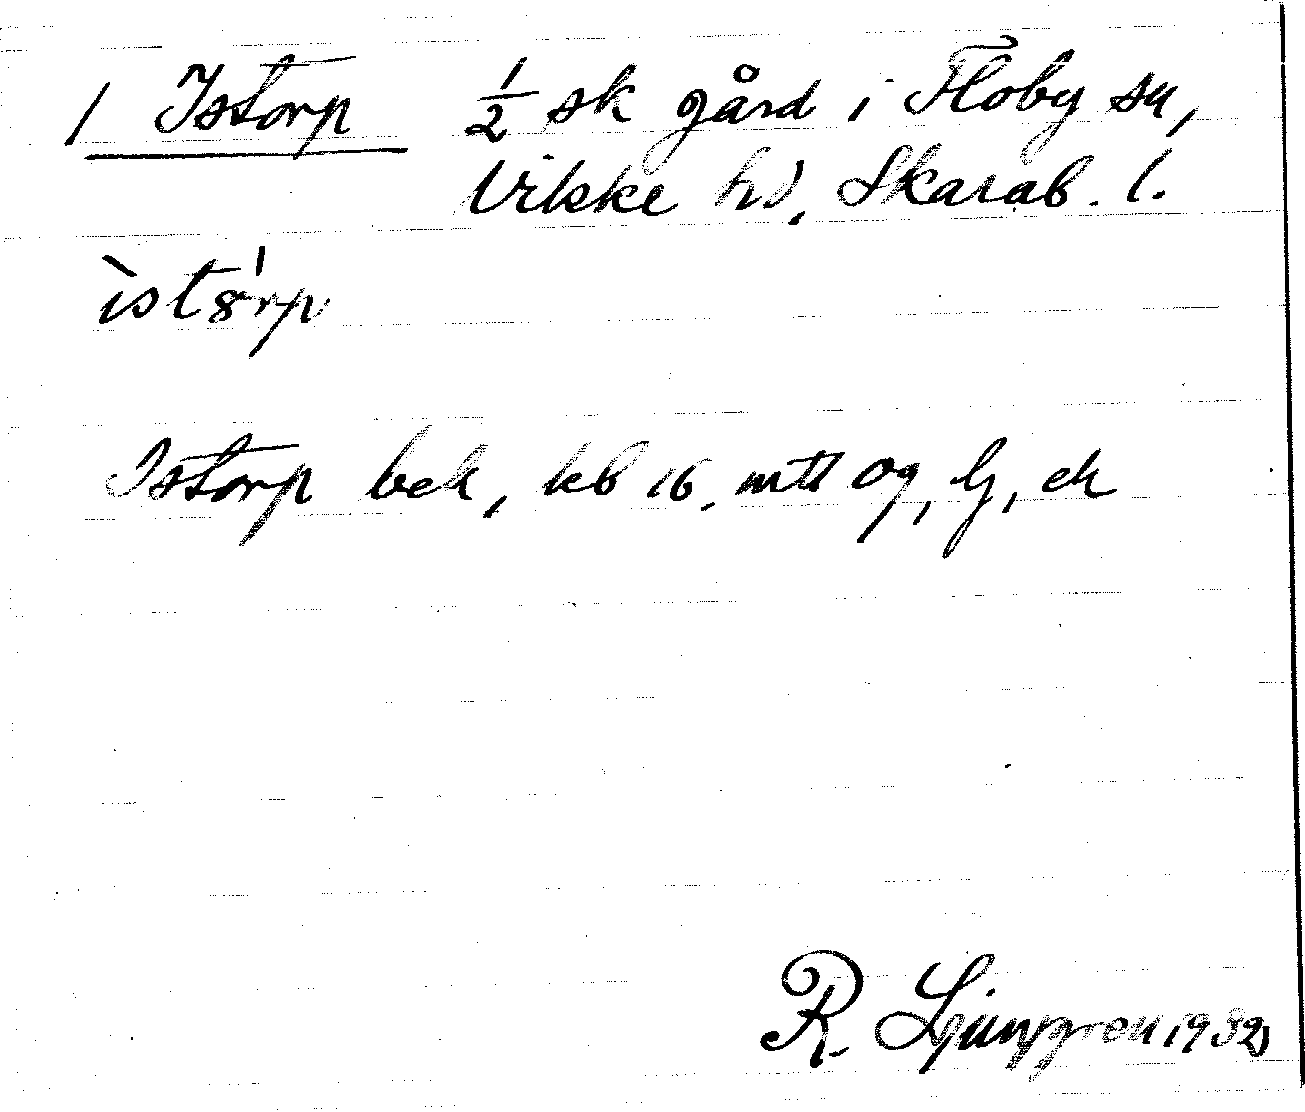 1 Istorp ½ sk gård i Floby sn,
Vilske hd, Skarab. l.
ist8rp
Istorp bek, kb 16, mtl og, lj, ek
R. Ljunggren 1932